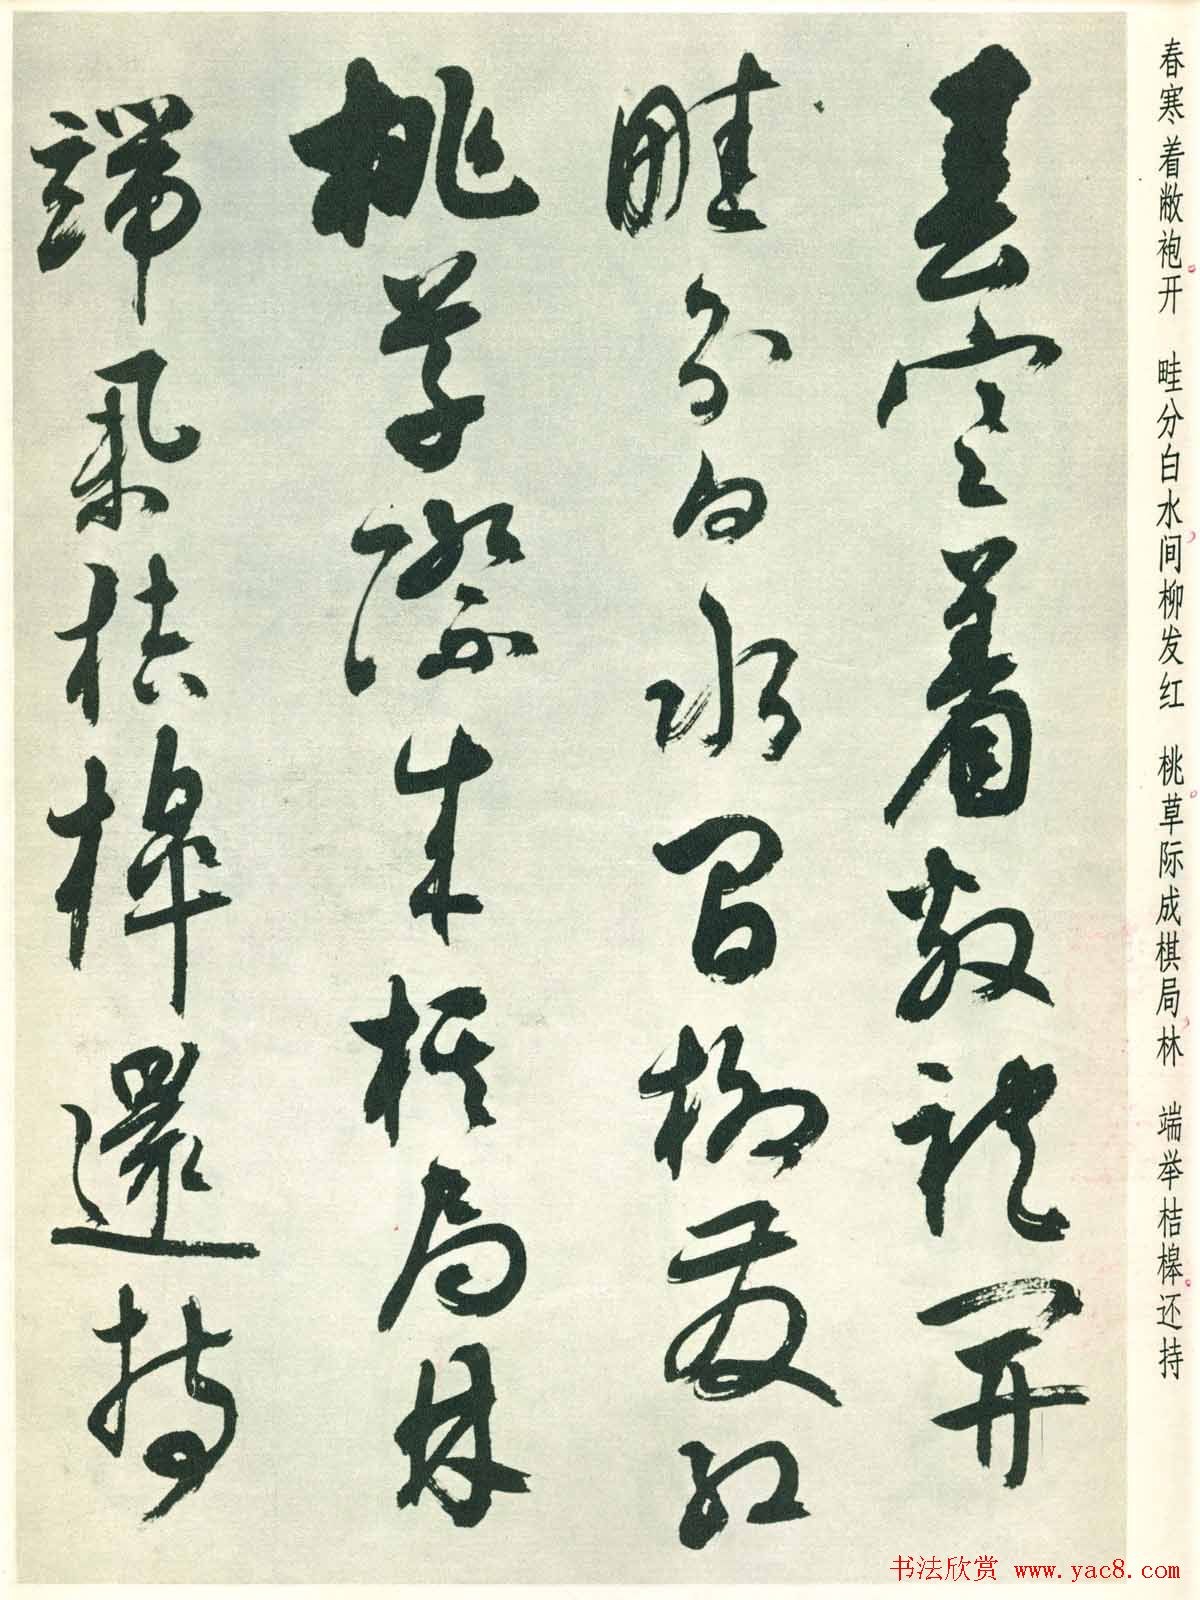 春寒着敝袍开　畦分白水间柳发红　桃草际成棋局林　端举桔槔还持
春寒着敝袍開
畦分白水間柳發紅
桃草際成棋局林
端舉桔槔還持
书法欣赏 www.yac8.com